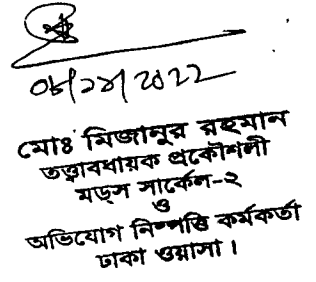 মোঃ মিজানুর রহমান
তত্ত্বাবধায়ক প্রকৌশলী
মড্স সার্কেল-২
ও
অভিযোগ নিষ্পত্তি কর্মকর্তা
ঢাকা ওয়াসা।